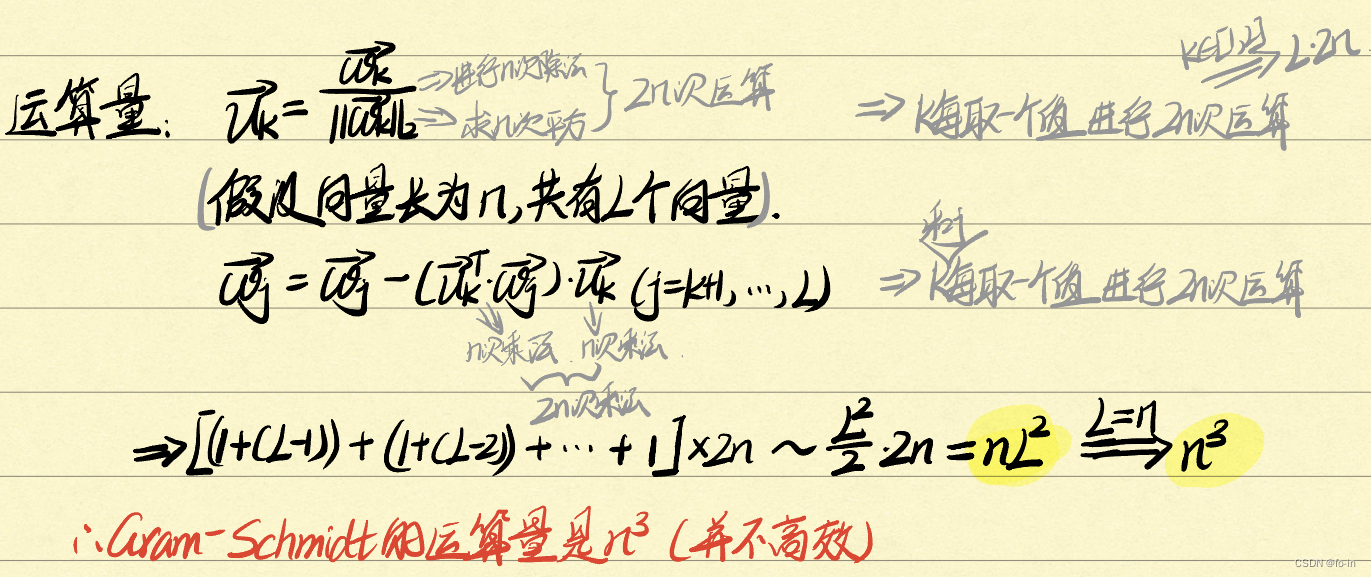 k∈[1,L] ⇒ L·2n
运算量: v⃗k = w⃗k / ||w⃗k||₂ ⇒进行n次除法 ⇒求n次平方 } 2n次运算 ⇒ k每取一个值 进行2n次运算
(假设向量长为n,共有L个向量).
和j
w⃗j = w⃗j - (v⃗kᵀ·w⃗j)·v⃗k (j=k+1,…,L) ⇒ k每取一个值 进行2n次运算
n次乘法 n次乘法
2n次乘法
⇒[(1+(L-1))+(1+(L-2))+…+1]×2n ~ L²/2·2n = nL² L=n ⇒ n³
∴Gram-Schmidt的运算量是n³ (并不高效)
CSDN @fc-in